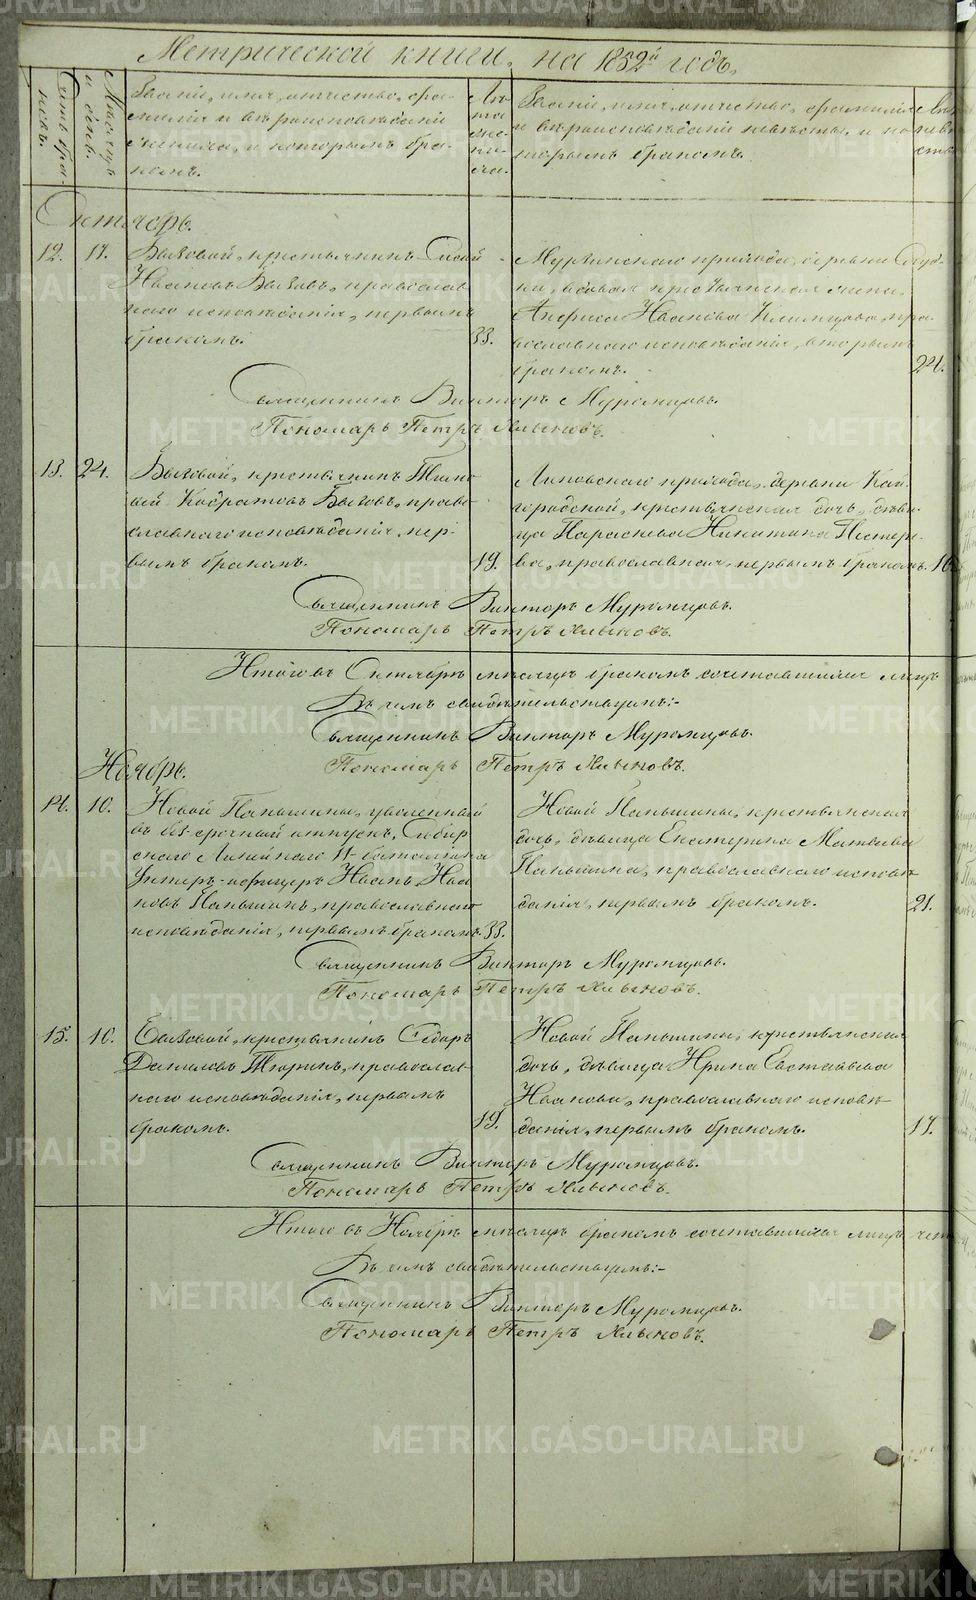 Метрической книги, на 1852й годъ,
Счетъ браковъ.
Мѣсяцъ и день.
Званіе, имя, отчество, фа-
милія и вѣроисповѣданіе
жениха, и которымъ бра-
комъ.
Лѣ-
та
же-
ни-
ха.
Званіе, имя, отчество, фамилія
и вѣроисповѣданіе невѣсты, и ко-
торымъ бракомъ.
Октябрь.
12. 17. Быковой, крестьянинъ
Ивановъ Быковъ, православ-
наго исповѣданія, первымъ
бракомъ. 33.
прихода, деревни
вдовая крестьянская жена,
Анфиса Иванова Климцова, пра-
вославнаго исповѣданія, вторымъ
бракомъ. 24.
Священникъ Викторъ Муромцовъ.
Пономарь Петръ Хлыновъ.
13. 24. Быковой, крестьянинъ Тимо-
фей Кодратовъ Быковъ, право-
славнаго исповѣданія, пер-
вымъ бракомъ. 19.
Липовскаго прихода, деревни Кай-
городской, крестьянская дочь, дѣви-
ца Параскева Никитина Пестере-
ва, православная, первымъ бракомъ. 16
Священникъ Викторъ Муромцовъ.
Пономарь Петръ Хлыновъ.
Итого въ Октябрѣ мѣсяцѣ бракомъ сочетавшихся лицъ
Въ чемъ свидѣтельствуемъ:-
Священникъ Викторъ Муромцовъ.
Пономарь Петръ Хлыновъ.
Ноябрь.
14. 10. Новой Паньшины, уволенный
въ безсрочный отпускъ, Сибир-
скаго Линейнаго 11 баталіона
Унтеръ-офицеръ Иванъ Ива-
новъ Паньшинъ, православнаго
исповѣданія, первымъ бракомъ. 33.
Новой Паньшины, крестьянская
дочь, дѣвица Екатерина Матвѣева
Паньшина, православнаго исповѣ-
данія, первымъ бракомъ. 21.
Священникъ Викторъ Муромцовъ.
Пономарь Петръ Хлыновъ.
15. 10. Быковой, крестьянинъ Сидоръ
Даниловъ Тюринъ, православ-
наго исповѣданія, первымъ
бракомъ. 19.
Новой Паньшины, крестьянская
дочь, дѣвица Ирина Евстафьева
Иванова, православнаго исповѣ-
данія, первымъ бракомъ. 17.
Священникъ Викторъ Муромцовъ.
Пономарь Петръ Хлыновъ.
Итого въ Ноябрѣ мѣсяцѣ бракомъ сочетавшихся лицъ чет
Въ чемъ свидѣтельствуемъ:-
Священникъ Викторъ Муромцовъ.
Пономарь Петръ Хлыновъ.
METRIKI.GASO-URAL.RU